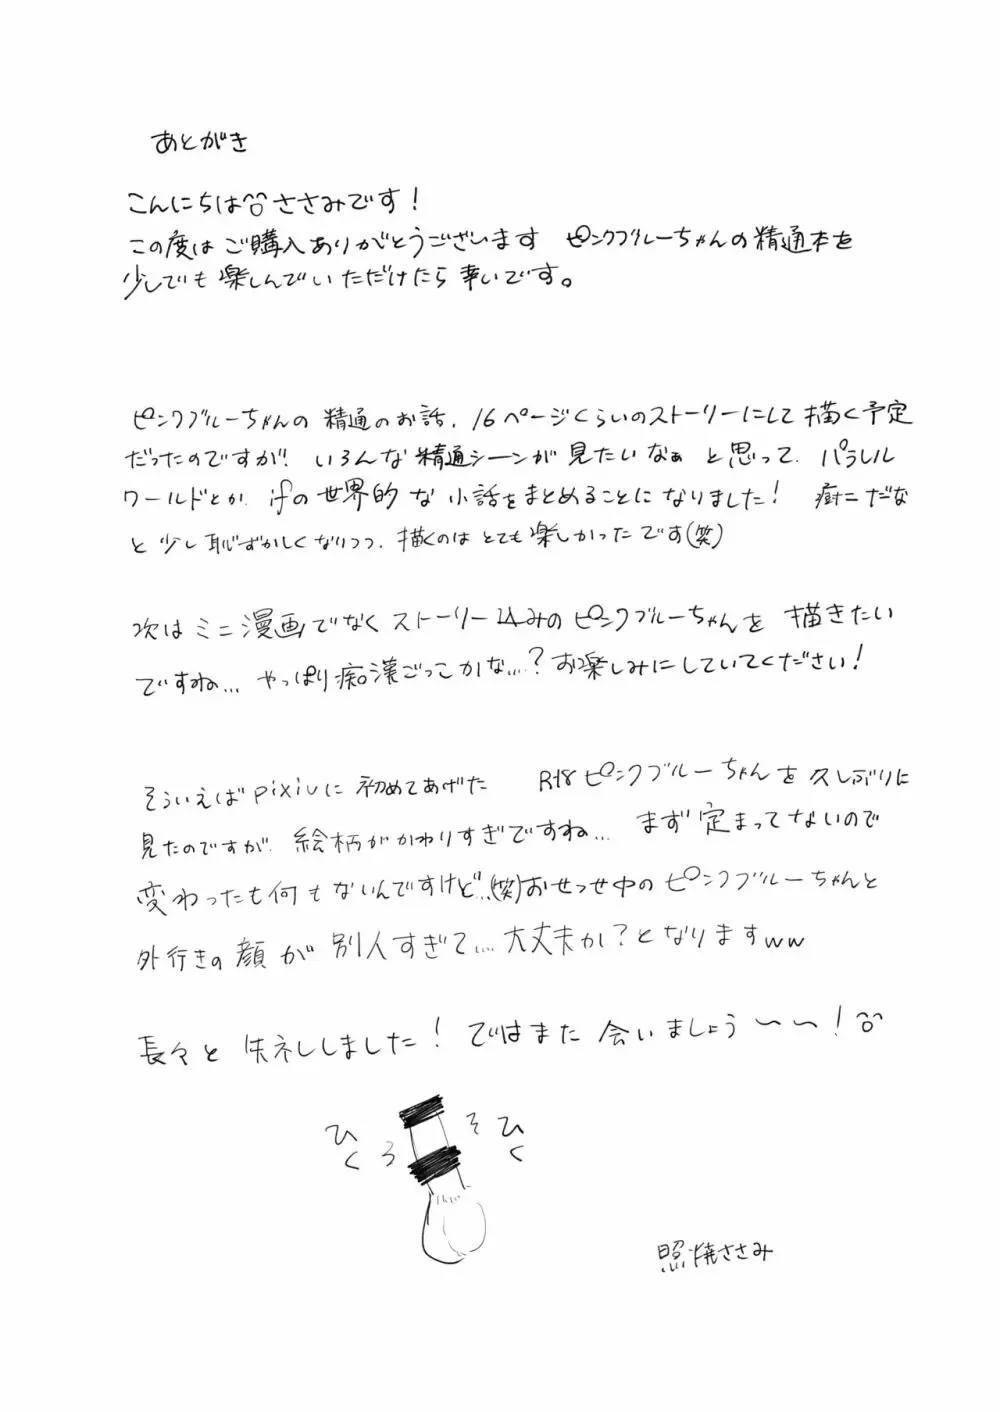 あとがき
こんにちは ささみです！
この度は ご購入ありがとうございます ピンクブルーちゃんの精通本を
少しでも 楽しんでいただけたら 幸いです。
ピンクブルーちゃんの 精通のお話、16ページくらいのストーリーにして 描く予定
だったのですが、いろんな 精通シーンが 見たいなぁ と思って、パラレル
ワールドとか、ifの世界的な 小話をまとめることになりました！ 厨二だな
と 少し恥ずかしくなりつつ、描くのは とても楽しかったです(笑)
次は ミニ漫画でなく ストーリー込みの ピンクブルーちゃんを 描きたい
ですね… やっぱり痴漢ごっこかな…？お楽しみにしていてください！
そういえば pixivに 初めてあげた R18 ピンクブルーちゃんを 久しぶりに
見たのですが、絵柄がかわりすぎですね… まず定まってないので
変わったも何もないんですけど…(笑)おせっせ中の ピンクブルーちゃんと
外行きの 顔が 別人すぎて… 大丈夫か？となりますww
長々と 失礼しました！ ではまた 会いましょう〜〜！
ひく
ひく
照焼ささみ